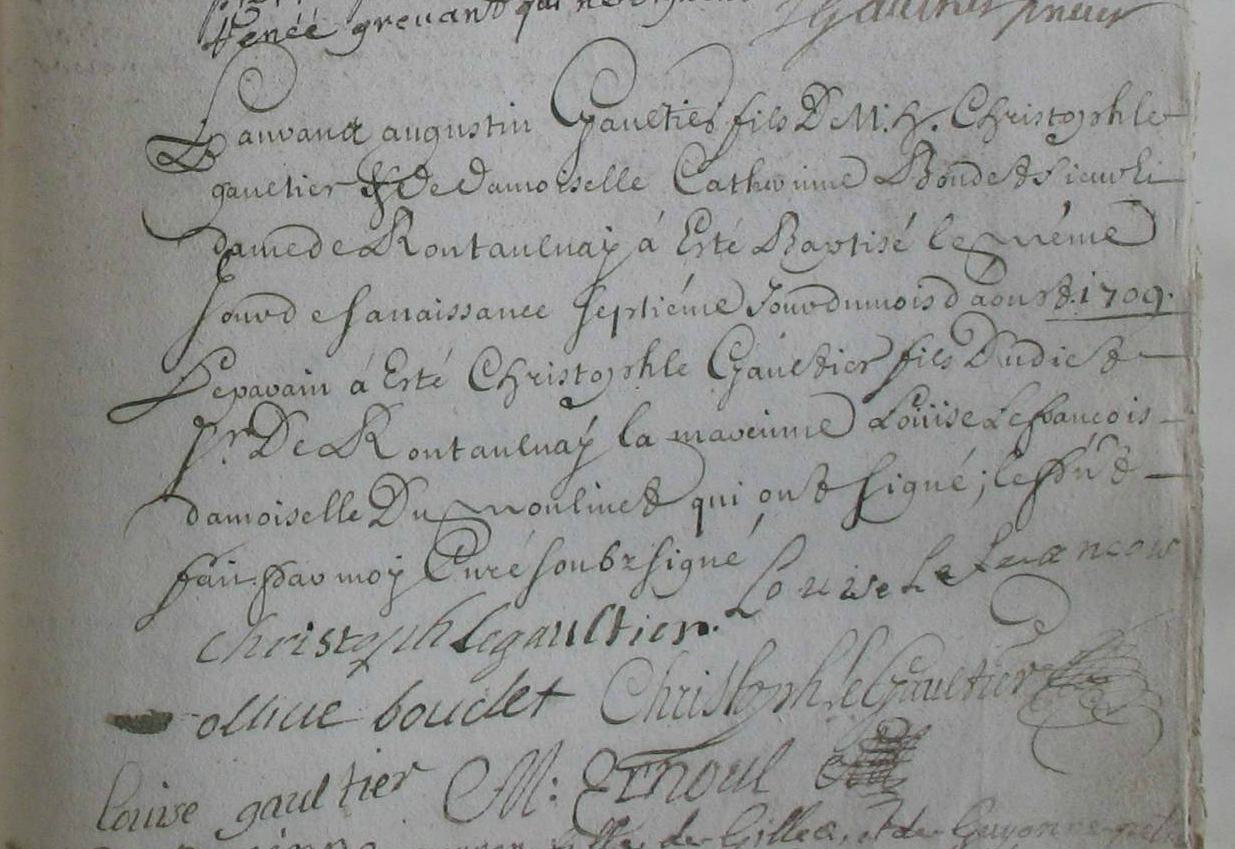 René grevant qui ne signe Gaultier prieur
Laurand augustin Gaultier fils De M. H. Christophle
gaultier & De damoiselle Catherinne Boudet Sieur &
dame de Rontaulnay à Esté Baptisé le même
Jour de sa naissance septiéme Jour du mois d'aoust. 1709.
Le parain á Esté Christophle Gaultier fils Dudict
Sr. De Rontaulnaÿ la mareinne Loüise Lefrancois
damoiselle Du moulinet qui ont signé; le prnt
fait par moÿ Curé soubzsigné
Louise Le francois
Christophle gaultier.
ollive boudet Christophle Gaultier
louise gaultier M: Ernoul
fille de Gilles, et de Guyonne